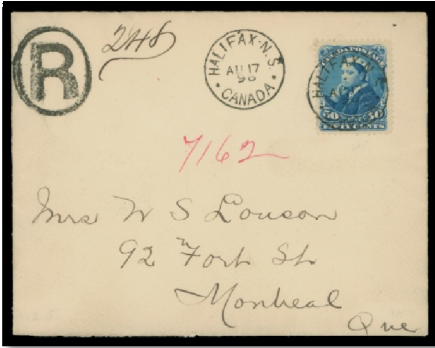 R
248
HALIFAX·N.S
AU 17
CANADA
CANADA POSTAGE
HALIFAX·N.S
50 50
FIFTY CENTS
7162
Mrs W S Louson
92 Fort St
Montreal
Que